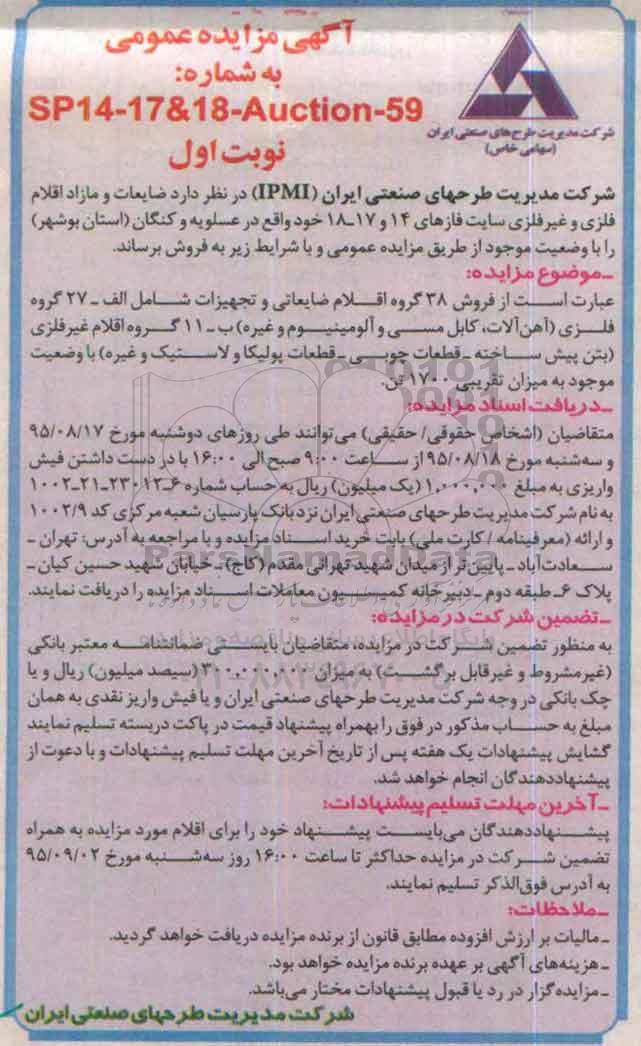 آگهی مزایده عمومی
به شماره:
SP14-17&18-Auction-59
نوبت اول
شرکت مدیریت طرح‌های صنعتی ایران
(سهامی خاص)
شرکت مدیریت طرحهای صنعتی ایران (IPMI) در نظر دارد ضایعات و مازاد اقلام
فلزی و غیرفلزی سایت فازهای ۱۴ و ۱۷ـ۱۸ خود واقع در عسلویه و کنگان (استان بوشهر)
را با وضعیت موجود از طریق مزایده عمومی و با شرایط زیر به فروش برساند.
ـ موضوع مزایده:
عبارت است از فروش ۳۸ گروه اقلام ضایعاتی و تجهیزات شامل الف ـ ۲۷ گروه
فلزی (آهن‌آلات، کابل مسی و آلومینیوم و غیره) ب ـ ۱۱ گروه اقلام غیرفلزی
(بتن پیش ساخته ـ قطعات چوبی ـ قطعات پولیکا و لاستیک و غیره) با وضعیت
موجود به میزان تقریبی ۱۷۰۰ تن.
ـ دریافت اسناد مزایده:
متقاضیان (اشخاص حقوقی/ حقیقی) می‌توانند طی روزهای دوشنبه مورخ ۹۵/۰۸/۱۷
و سه‌شنبه مورخ ۹۵/۰۸/۱۸ از ساعت ۹:۰۰ صبح الی ۱۶:۰۰ با در دست داشتن فیش
واریزی به مبلغ ۱,۰۰۰,۰۰۰ (یک میلیون) ریال به حساب شماره ۶ـ۲۳۰۱۲ـ۲۱ـ۱۰۰۲
به نام شرکت مدیریت طرحهای صنعتی ایران نزد بانک پارسیان شعبه مرکزی کد ۱۰۰۲/۹
و ارائه (معرفینامه / کارت ملی) بابت خرید اسناد مزایده و با مراجعه به آدرس: تهران ـ
سعادت‌آباد ـ پایین‌تر از میدان شهید تهرانی مقدم (کاج) ـ خیابان شهید حسین کیان ـ
پلاک ۶ـ طبقه دوم ـ دبیرخانه کمیسیون معاملات اسناد مزایده را دریافت نمایند.
ـ تضمین شرکت در مزایده:
به منظور تضمین شرکت در مزایده، متقاضیان بایستی ضمانتنامه معتبر بانکی
(غیرمشروط و غیرقابل برگشت) به میزان ۳۰۰,۰۰۰,۰۰۰ (سیصد میلیون) ریال و یا
چک بانکی در وجه شرکت مدیریت طرحهای صنعتی ایران و یا فیش واریز نقدی به همان
مبلغ به حساب مذکور در فوق را بهمراه پیشنهاد قیمت در پاکت دربسته تسلیم نمایند
گشایش پیشنهادات یک هفته پس از تاریخ آخرین مهلت تسلیم پیشنهادات و با دعوت از
پیشنهاددهندگان انجام خواهد شد.
ـ آخرین مهلت تسلیم پیشنهادات:
پیشنهاددهندگان می‌بایست پیشنهاد خود را برای اقلام مورد مزایده به همراه
تضمین شرکت در مزایده حداکثر تا ساعت ۱۶:۰۰ روز سه‌شنبه مورخ ۹۵/۰۹/۰۲
به آدرس فوق‌الذکر تسلیم نمایند.
ـ ملاحظات:
ـ مالیات بر ارزش افزوده مطابق قانون از برنده مزایده دریافت خواهد گردید.
ـ هزینه‌های آگهی بر عهده برنده مزایده خواهد بود.
ـ مزایده‌گزار در رد یا قبول پیشنهادات مختار می‌باشد.
شرکت مدیریت طرحهای صنعتی ایران
ParsNamadData